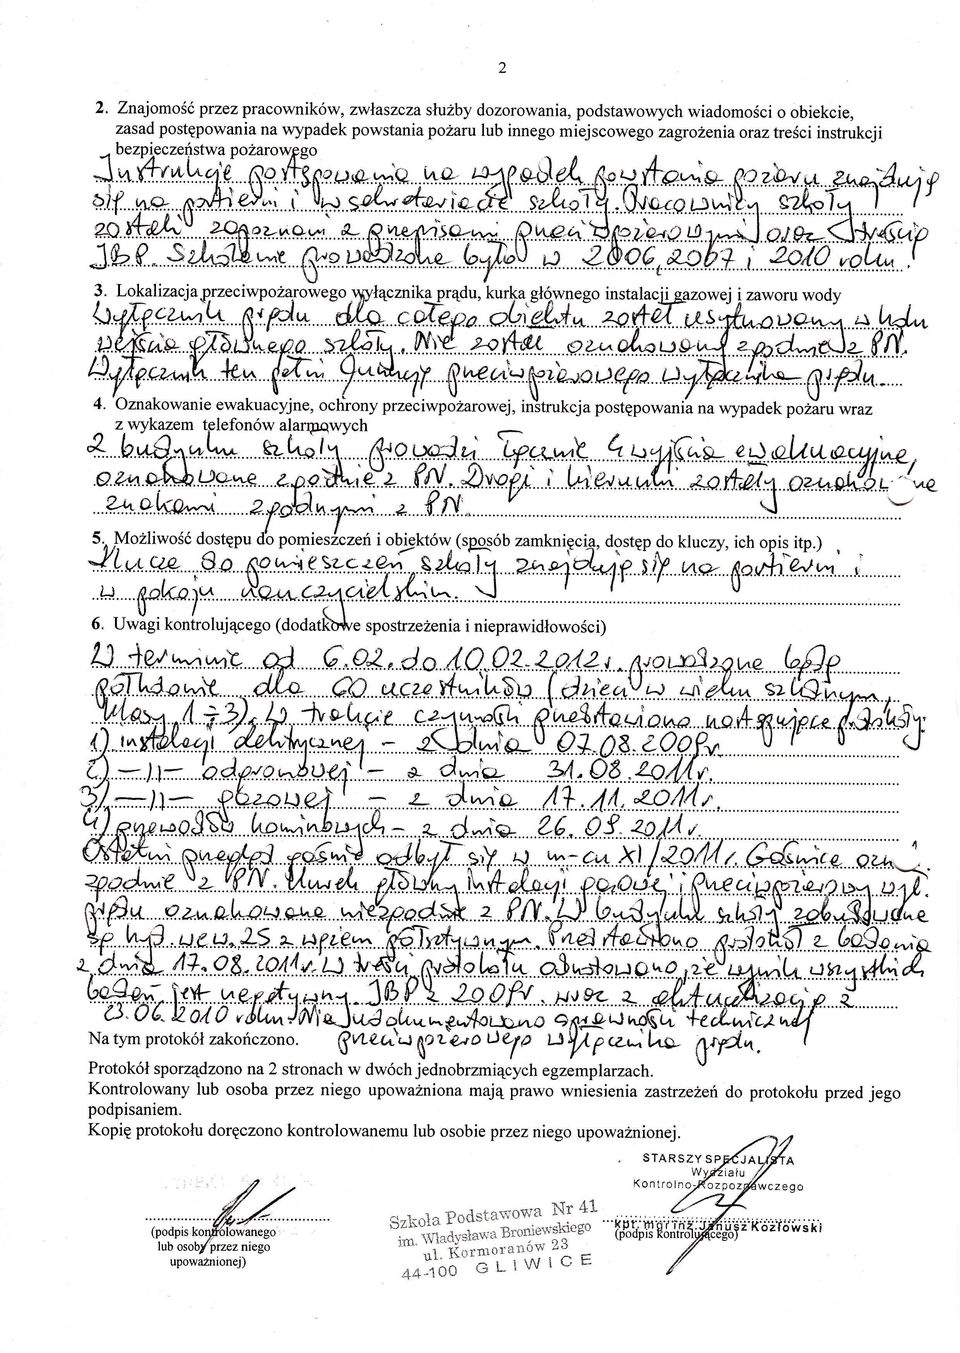 2
2. Znajomość przez pracowników, zwłaszcza służby dozorowania, podstawowych wiadomości o obiekcie,
zasad postępowania na wypadek powstania pożaru lub innego miejscowego zagrożenia oraz treści instrukcji
bezpieczeństwa pożarowego
Instrukcje postępowania na wypadek powstania pożaru znajdują
się na portierni i w sekretariacie szkoły. Pracownicy szkoły
zostali zapoznani z przepisami przeciwpożarowymi oraz treścią
IBP. Szkolenie prowadzone było w 2006, 2007 i 2010 roku.
3. Lokalizacja przeciwpożarowego wyłącznika prądu, kurka głównego instalacji gazowej i zaworu wody
Wyłącznik prądu dla całego obiektu został usytuowany w
wejścia głównego szkoły. Nie został oznakowany zgodnie z PN.
Wyłącznik ten pełni funkcję przeciwpożarowego wyłącznika prądu.
4. Oznakowanie ewakuacyjne, ochrony przeciwpożarowej, instrukcja postępowania na wypadek pożaru wraz
z wykazem telefonów alarmowych
Z budynku szkoły prowadzi łącznie 4 wyjścia ewakuacyjne,
oznakowane zgodnie z PN. Drogi i kierunki zostały oznakowane
znakami zgodnymi z PN.
5. Możliwość dostępu do pomieszczeń i obiektów (sposób zamknięcia, dostęp do kluczy, ich opis itp.)
Klucze do pomieszczeń szkoły znajdują się na portierni i
w pokoju nauczycielskim.
6. Uwagi kontrolującego (dodatkowe spostrzeżenia i nieprawidłowości)
W terminie od 6.02. do 10.02.2012r. prowadzone będą
półkolonie dla 60 uczestników (dzieci w wieku szkolnym,
klasy 1÷3). W trakcie czynności przedstawiono następujące protokoły:
1) instalacji elektrycznej - z dnia 07.08.2009r.
2) —))— odgromowej - z dnia 31.08.2011r.
3) —))— gazowej - z dnia 17.11.2011r.
4) przewodów kominowych - z dnia 26.09.2011r.
Ostatni przegląd gaśnic odbył się w m-cu XI/2011r. Gaśnice ozn.
zgodnie z PN. Kurek główny instalacji gazowej i przeciwpożarowy wył.
prądu oznakowane niezgodnie z PN. W budynku szkoły zabudowane
są hyd. wew. 25 z wężem półsztywnym. Przedstawiono protokół z badania
z dnia 17.08.2011r. W treści protokołu odnotowano, że wynik wszystkich
badań jest negatywny. IBP z 2009r. wraz z aktualizacją z
23.06.2010 roku. Nie udokumentowano sprawności technicznej
przeciwpożarowego wyłącznika prądu.
Na tym protokół zakończono.
Protokół sporządzono na 2 stronach w dwóch jednobrzmiących egzemplarzach.
Kontrolowany lub osoba przez niego upoważniona mają prawo wniesienia zastrzeżeń do protokołu przed jego
podpisaniem.
Kopię protokołu doręczono kontrolowanemu lub osobie przez niego upoważnionej.
STARSZY SPECJALISTA
Wydziału
Kontrolno-Rozpoznawczego
kpt. mgr inż. Janusz Kozłowski
(podpis kontrolującego)
(podpis kontrolowanego
lub osoby przez niego
upoważnionej)
Szkoła Podstawowa Nr 41
im. Władysława Broniewskiego
ul. Kormoranów 23
44-100 GLIWICE